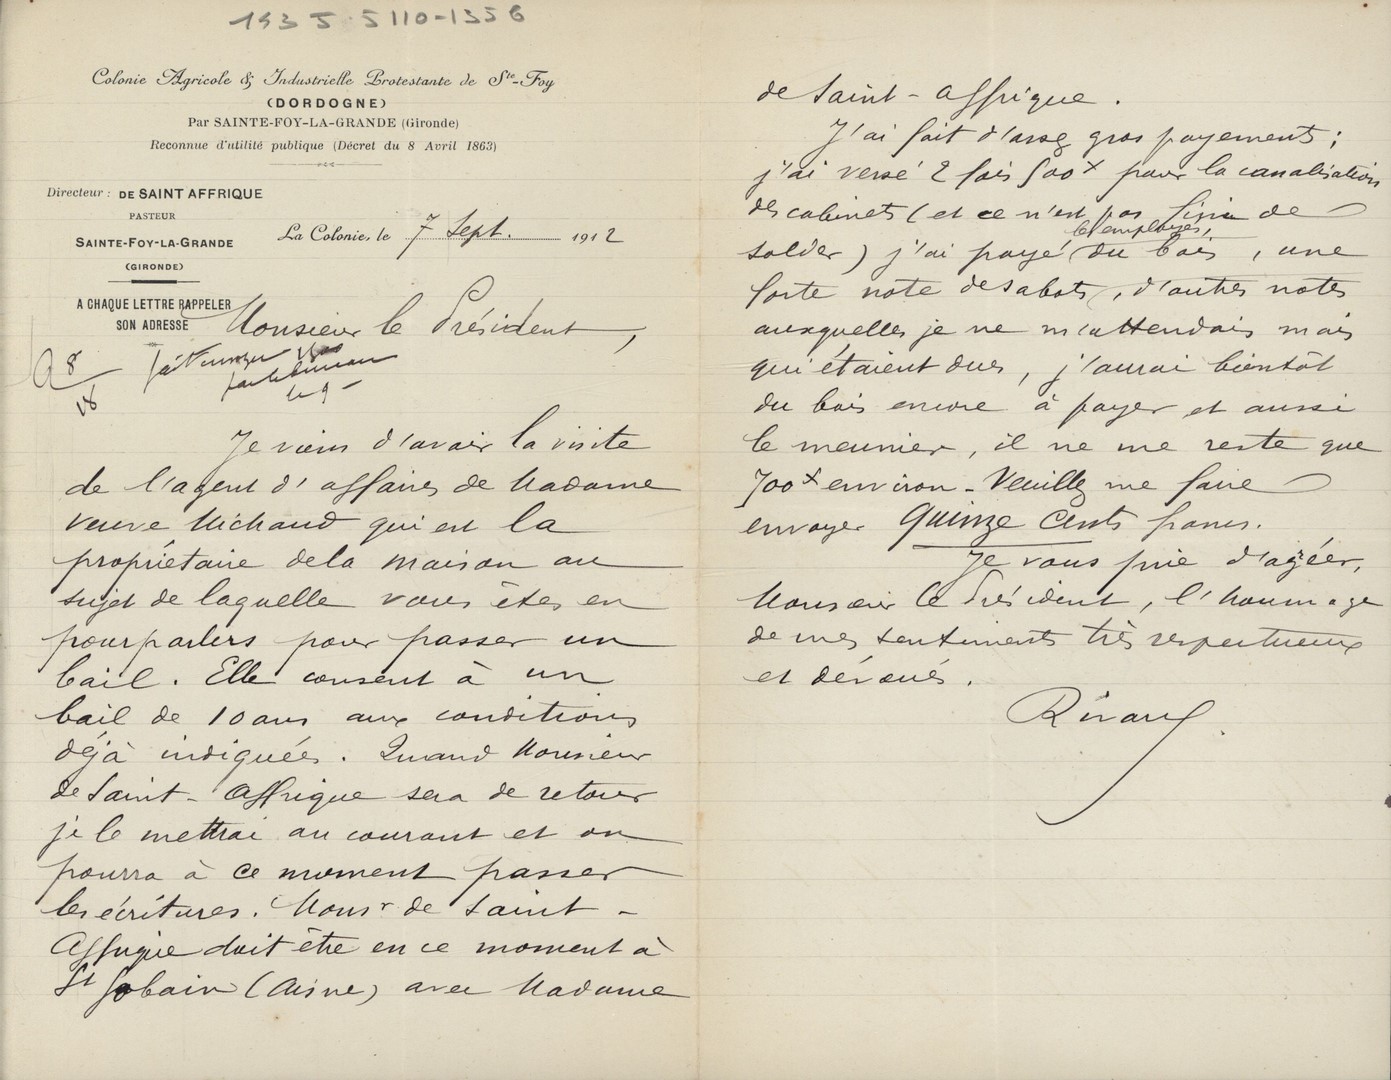 193 J 5110-1356
Colonie Agricole & Industrielle Protestante de Ste-Foy
(DORDOGNE)
Par SAINTE-FOY-LA-GRANDE (Gironde)
Reconnue d'utilité publique (Décret du 8 Avril 1863)
Directeur : DE SAINT AFFRIQUE
PASTEUR
SAINTE-FOY-LA-GRANDE
(GIRONDE)
A CHAQUE LETTRE RAPPELER
SON ADRESSE
La Colonie, le 7 Sept. 1912
Monsieur le Président,
8
18
le 9
Je viens d'avoir la visite
de l'agent d'affaires de Madame
veuve Michaud qui est la
propriétaire de la maison au
sujet de laquelle vous êtes en
pourparlers pour passer un
bail. Elle consent à un
bail de 10 ans aux conditions
déjà indiquées. Quand Monsieur
de Saint-Affrique sera de retour
je le mettrai au courant et on
pourra à ce moment passer
les écritures. Monsr de Saint-
Affrique doit être en ce moment à
St Gobain (Aisne) avec Madame
de Saint-Affrique.
J'ai fait d'assez gros payements ;
j'ai versé 2 fois 500 x pour la canalisation
des cabinets (et ce n'est pas fini de
solder) j'ai payé les employés, du bois, une
forte note de sabots, d'autres notes
auxquelles je ne m'attendais mais
qui étaient dues, j'aurai bientôt
du bois encore à payer et aussi
le meunier, il ne me reste que
700 x environ - Veuillez me faire
envoyer Quinze Cents francs.
Je vous prie d'agréer,
Monsieur le Président, l'hommage
de mes sentiments très respectueux
et dévoués.